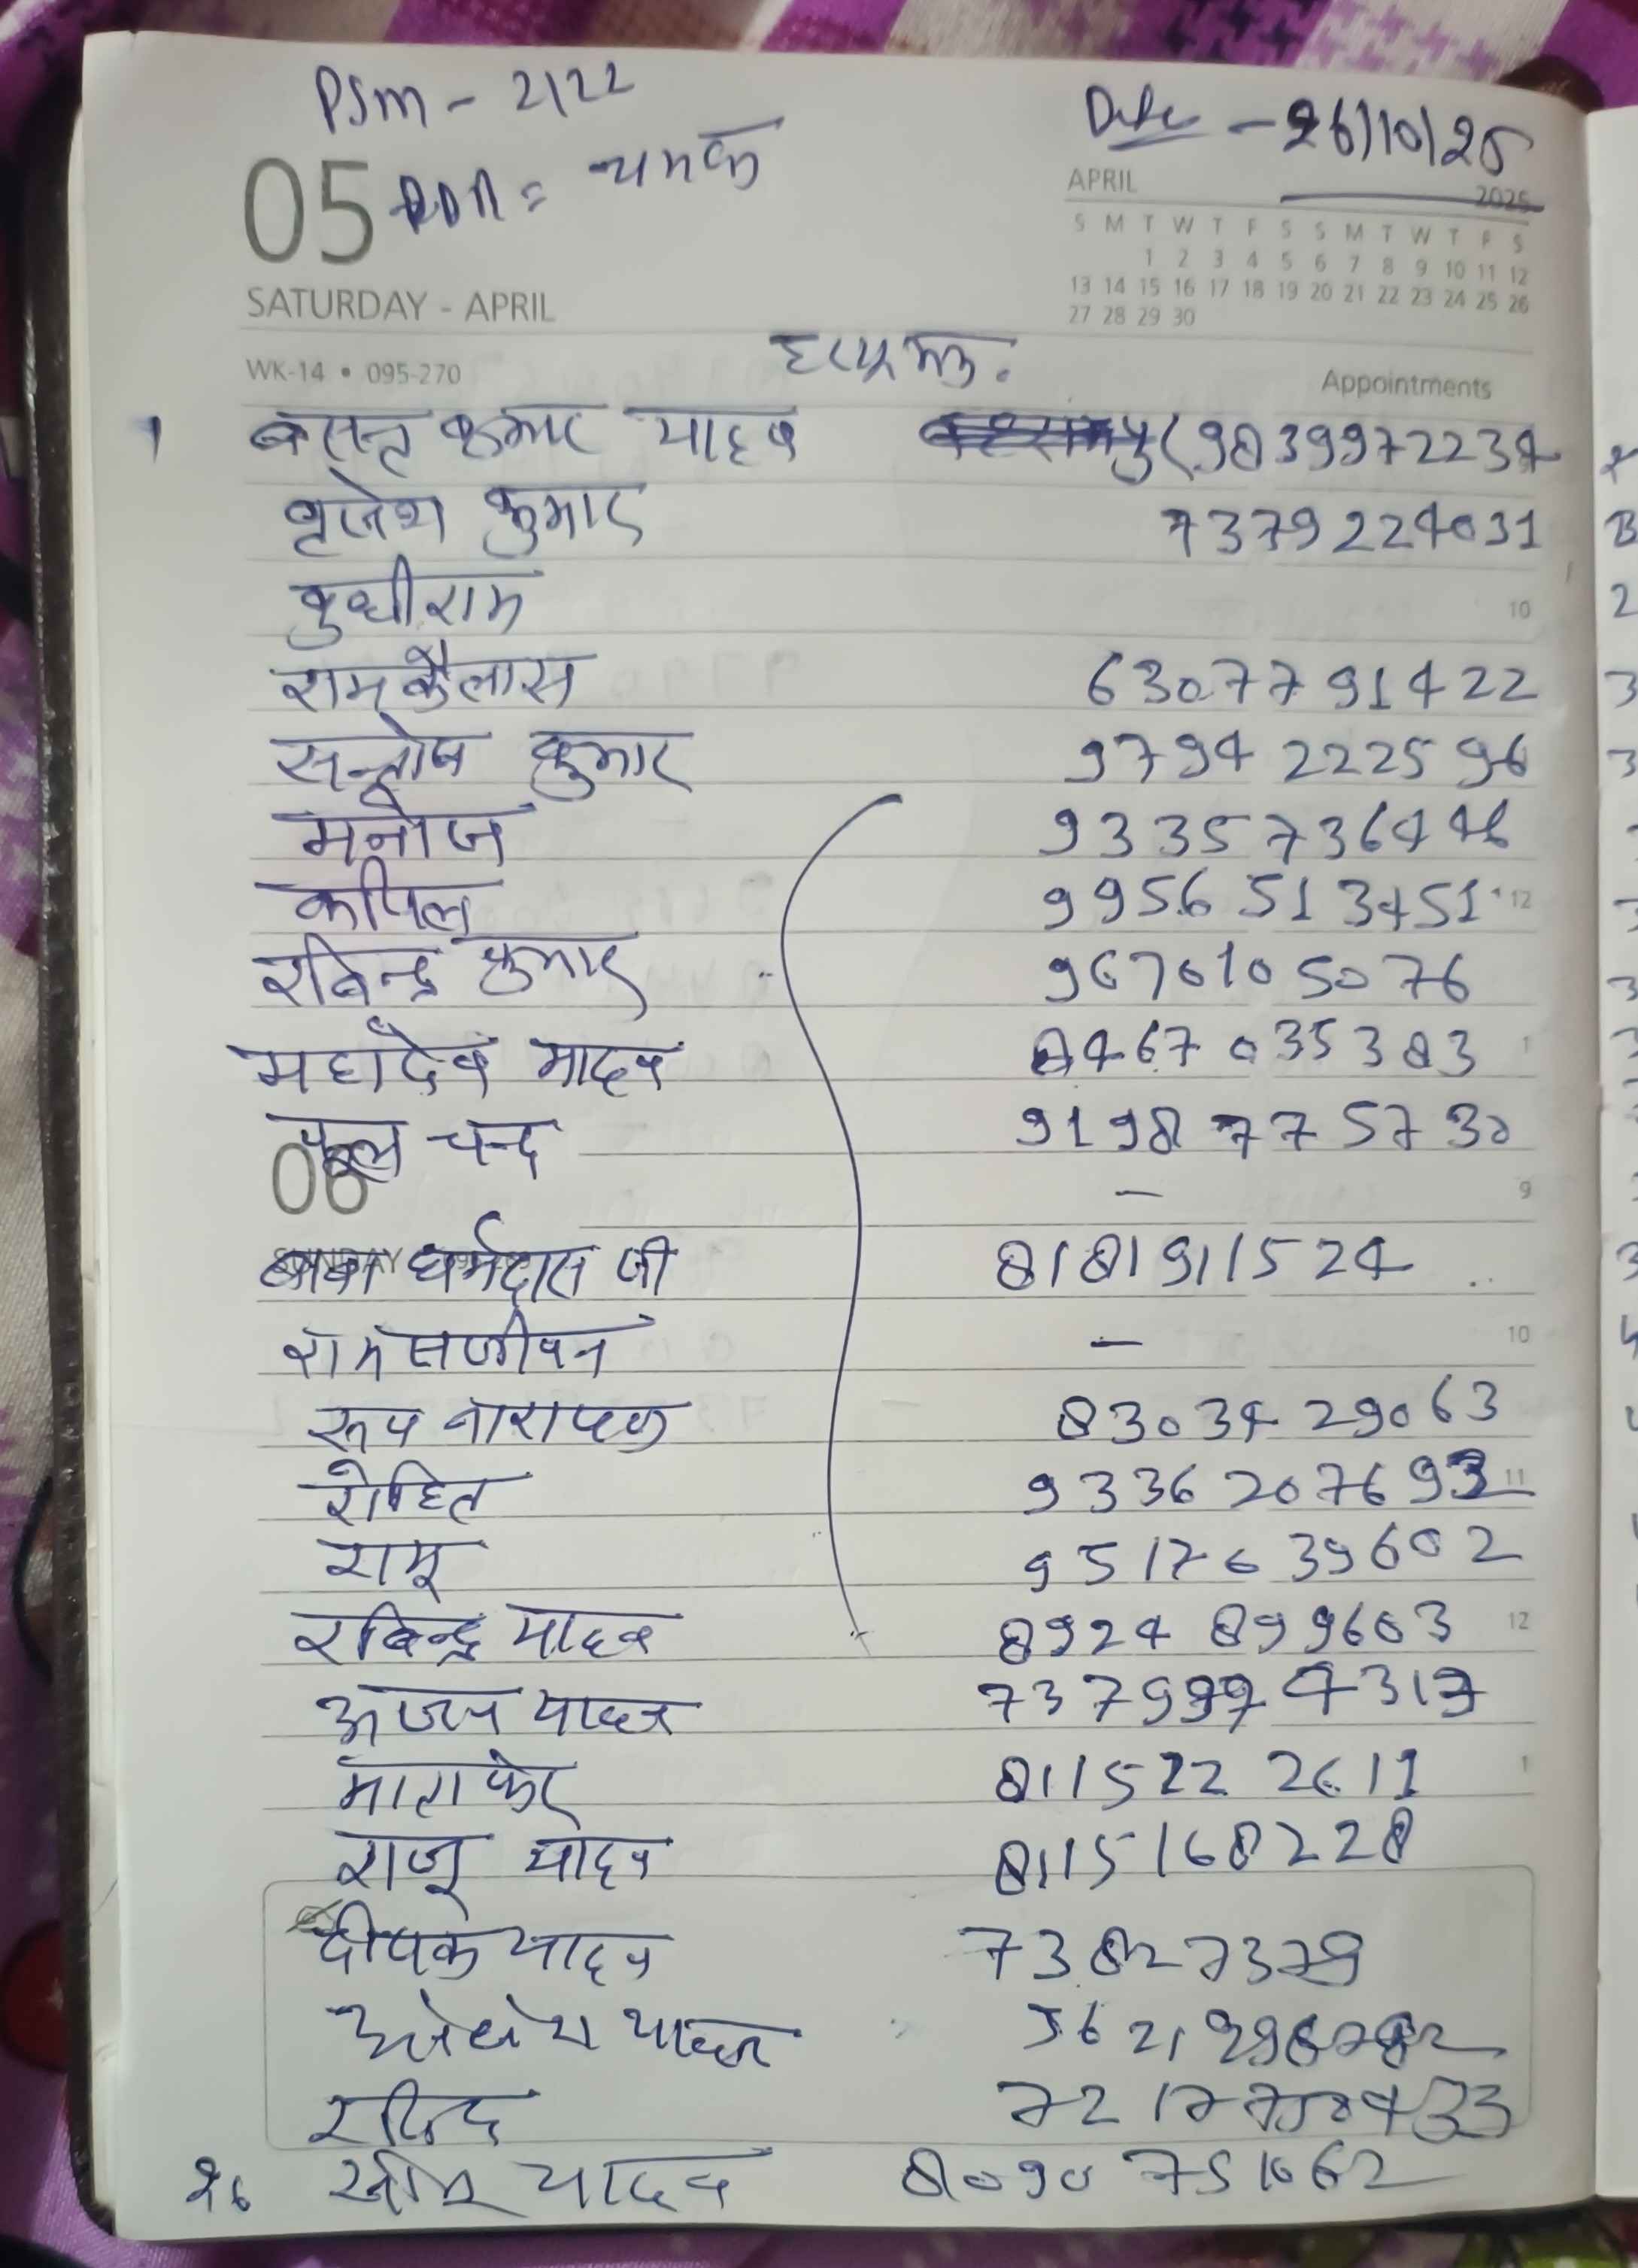 PSM - 2122
Date - 26/10/25
05
APRIL 2025
S M T W T F S S M T W T F S
1 2 3 4 5 6 7 8 9 10 11 12
13 14 15 16 17 18 19 20 21 22 23 24 25 26
27 28 29 30
SATURDAY - APRIL
WK-14 • 095-270
Appointments
1 बसन्त कुमार यादव 9839972234
बृजेश कुमार 7379224031
बुधीराम 10
रामकैलास 6307791422
सन्तोष कुमार 9794222596
मनोज 9335736446
कपिल 9956513451 12
रबिन्द्र कुमार 9670105076
महादेव यादव 8467035383 1
फूल चन्द 9198775730
06
— 9
SUNDAY
बाबा धर्मदास जी 8181911524
राम सजीवन — 10
रूप नारायण 8303429063
रोहित 11
रामू 9517639602
रबिन्द्र यादव 8924899603 12
यादव
माता फेर 8115222611 1
राजू यादव 8115168228
दीपक यादव
यादव
रविन्द्र
26 यादव 8090751662